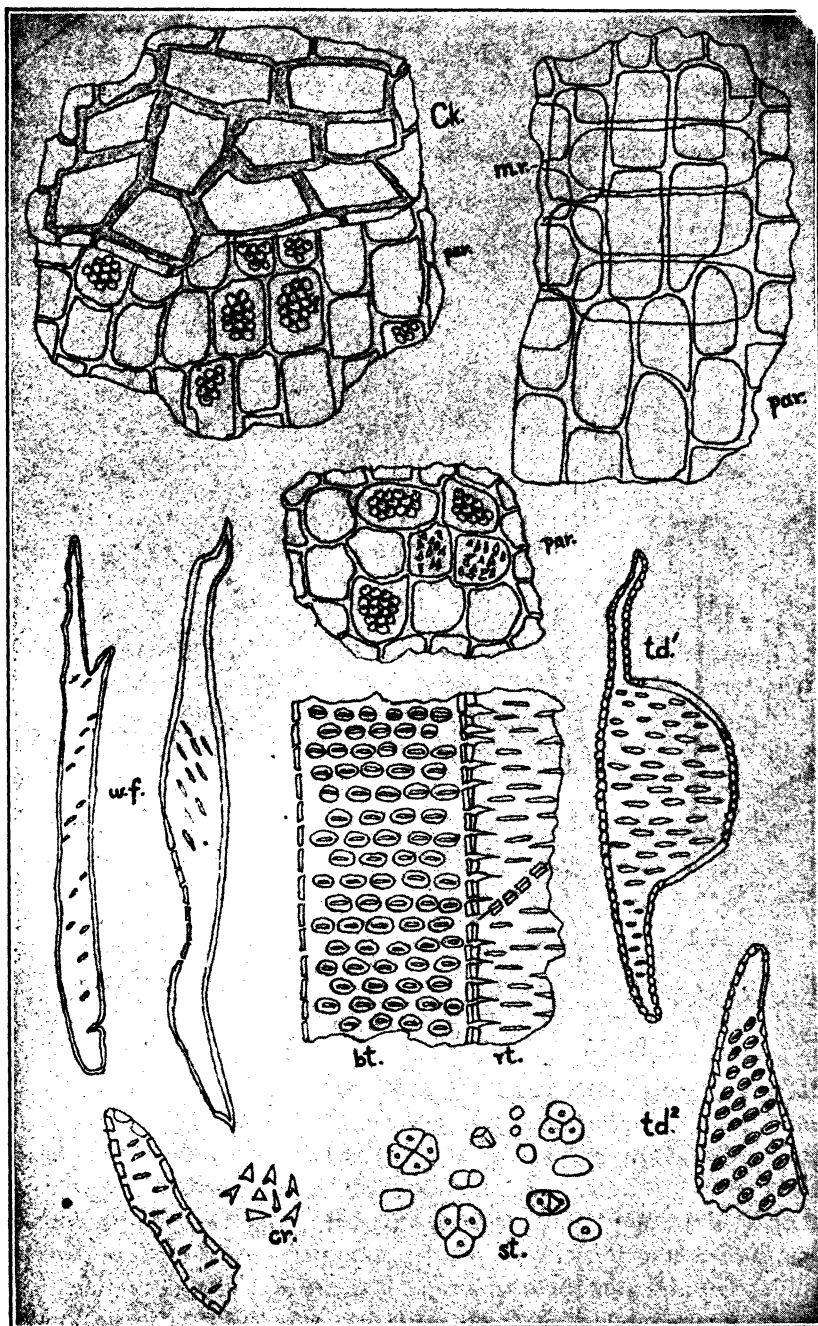 Ck.
m.r.
par.
par.
par.
t.d.¹
w.f.
bt.
rt.
t.d.²
cr.
st.